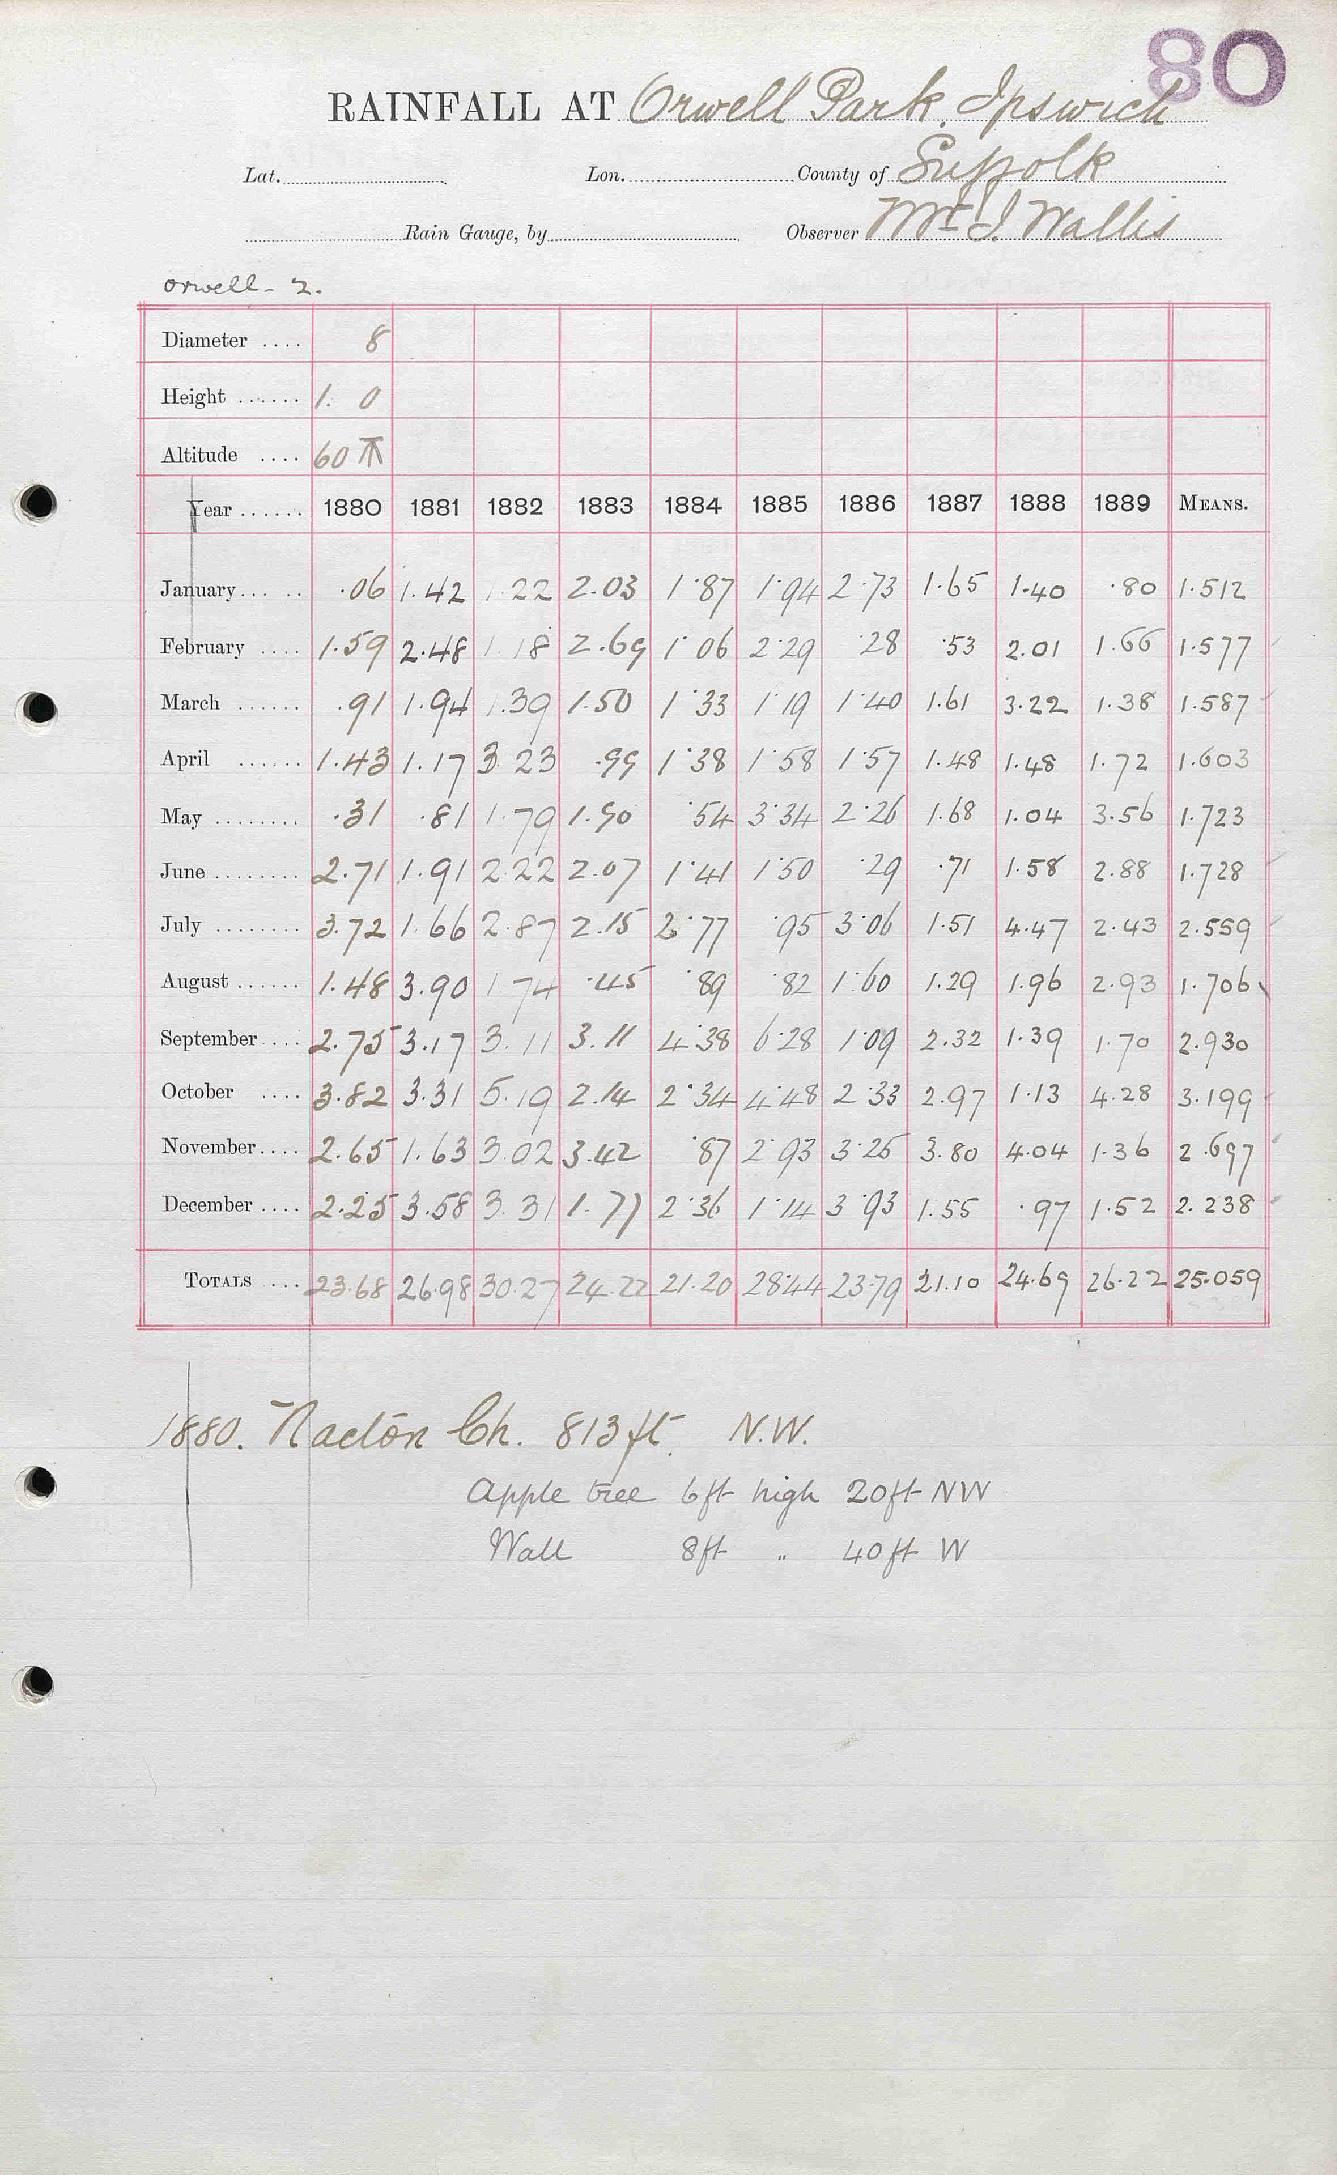 80
RAINFALL AT Orwell Park, Ipswich
Lat. Lon. County of Suffolk
Rain Gauge, by Observer Mr J. Wallis
Orwell - 2.
Diameter .... 8
Height ...... 1. 0
Altitude .... 60
Year ...... 1880 1881 1882 1883 1884 1885 1886 1887 1888 1889 MEANS.
January ... .. .06 1.42 1.22 2.03 1.87 1.94 2.73 1.65 1.40 .80 1.512
February .... 1.59 2.48 1.18 2.69 1.06 2.29 .28 .53 2.01 1.66 1.577
March ...... .91 1.94 1.39 1.50 1.33 1.19 1.40 1.61 3.22 1.38 1.587
April ...... 1.43 1.17 3.23 .99 1.38 1.58 1.57 1.48 1.48 1.72 1.603
May ........ .31 .81 1.79 1.90 .54 3.34 2.26 1.68 1.04 3.56 1.723
June ........ 2.71 1.91 2.22 2.07 1.41 1.50 .29 .71 1.58 2.88 1.728
July ........ 3.72 1.66 2.87 2.15 2.77 .95 3.06 1.51 4.47 2.43 2.559
August ...... 1.48 3.90 1.74 .45 .89 .82 1.60 1.29 1.96 2.93 1.706
September .... 2.75 3.17 3.11 3.11 4.38 6.28 1.09 2.32 1.39 1.70 2.930
October .... 3.82 3.31 5.19 2.14 2.34 4.48 2.33 2.97 1.13 4.28 3.199
November .... 2.65 1.63 3.02 3.42 .87 2.93 3.25 3.80 4.04 1.36 2.697
December .... 2.25 3.58 3.31 1.77 2.36 1.14 3.93 1.55 .97 1.52 2.238
TOTALS .... 23.68 26.98 30.27 24.22 21.20 28.44 23.79 21.10 24.69 26.22 25.059
1880. Nacton Ch. 813 ft. N.W.
Apple tree 6ft high 20ft NW
Wall 8ft " 40ft W